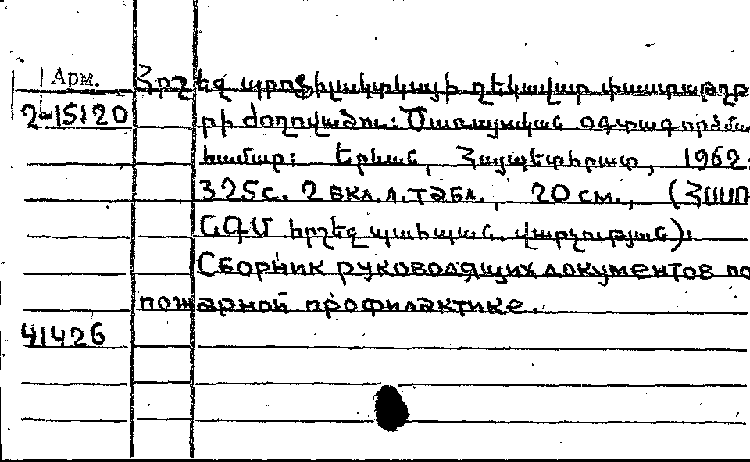 Арм. Հրշեջ պրոֆիլակտիկայի ղեկավար փաստաթղթ
2-15120 րի ժողովածու: Ծառայական օգտագործմա
համար: Երևան, Հայպետհրատ, 1962.
325с. 2 вкл.л.табл., 20 см., (ՀՍՍՌ
ՆԳՄ հրշեջ պահպան. վարչություն):
Сборник руководящих документов по
пожарной профилактике.
41426